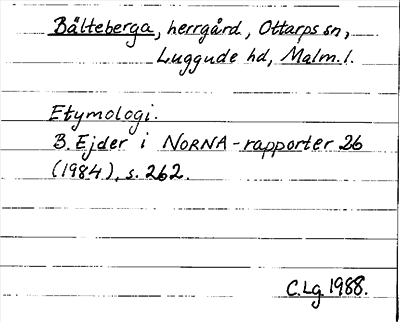 Bälteberga, herrgård, Ottarps sn,
Luggude hd, Malm. l.
Etymologi.
B. Ejder i NORNA-rapporter 26
(1984), s. 262.
C. Lg 1988.